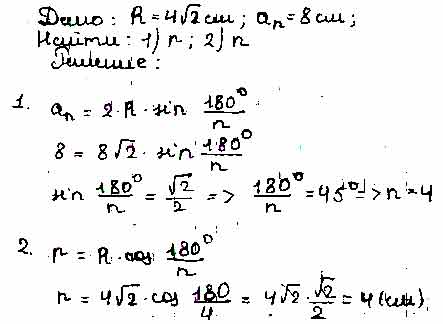 Дано: R = 4√2 см; aₙ = 8 см;
Найти: 1) n; 2) r
Решение:
1. aₙ = 2·R·sin 180°/n
8 = 8√2 · sin 180°/n
sin 180°/n = √2/2 => 180°/n = 45° => n = 4
2. r = R · cos 180°/n
r = 4√2 · cos 180/4 = 4√2 · √2/2 = 4 (см)